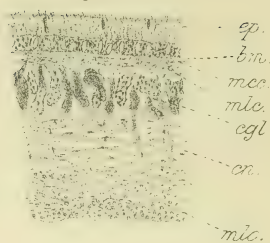 ep.
bm.
mcc.
mlc.
cgl
cn.
mlc.